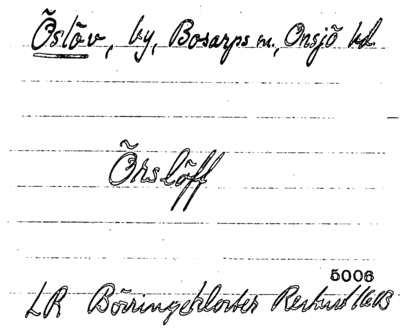 Öslöv, by, Bosarps sn., Onsjö hd
Örslöff
5006
LR Börringekloster